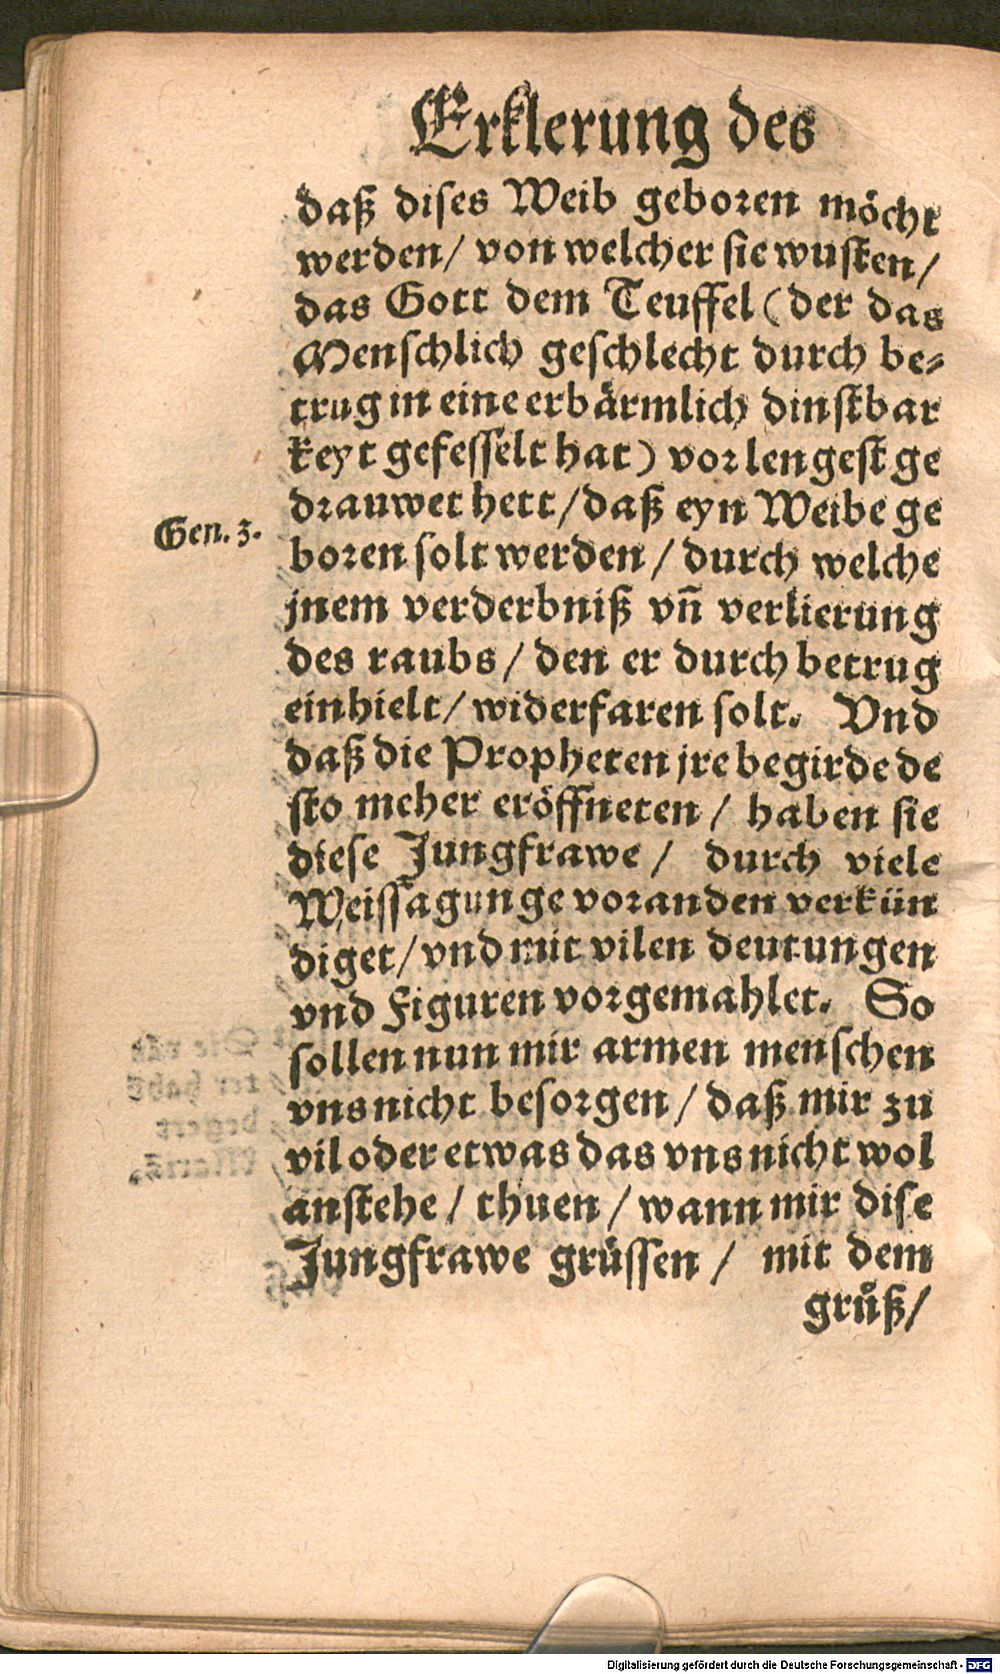 Erklerung des
daß dises Weib geboren möcht
werden/ von welcher sie wusten/
das Gott dem Teuffel (der das
Menschlich geschlecht durch be-
trug in eine erbärmlich dinstbar
keyt gefesselt hat) vor lengest ge
drauwet hett/ daß eyn Weibe ge
Gen. 3.
boren solt werden/ durch welche
jnem verderbniß vñ verlierung
des raubs/ den er durch betrug
einhielt/ widerfaren solt. Vnd
daß die Propheten jre begirde de
sto meher eröffneten/ haben sie
diese Jungfrawe/ durch viele
Weissagunge voranden verkün
diget/ vnd mit vilen deutungen
vnd Figuren vorgemahlet. So
sollen nun mir armen menschen
vns nicht besorgen/ daß mir zu
vil oder etwas das vns nicht wol
anstehe/ thuen/ wann mir dise
Jungfrawe grüssen/ mit dem
grůß/
Digitalisierung gefördert durch die Deutsche Forschungsgemeinschaft - DFG